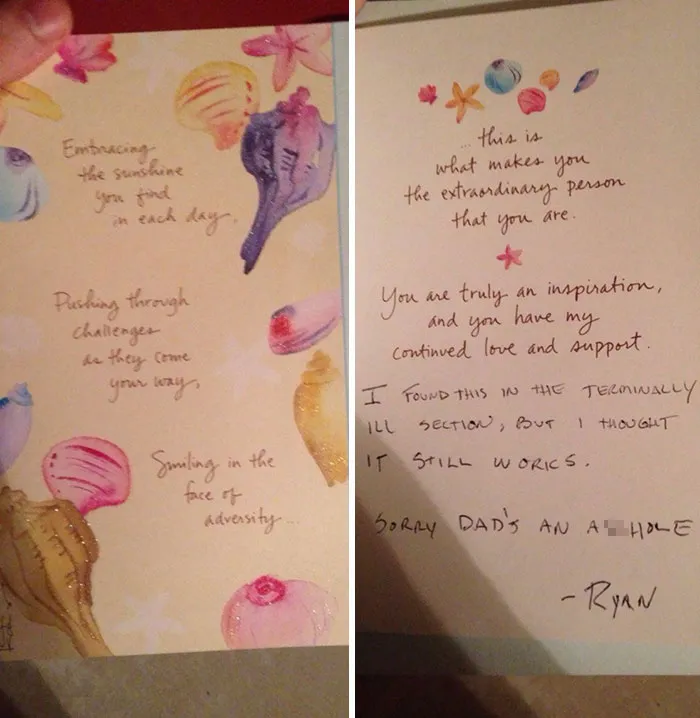 Embracing
the sunshine
you find
in each day,
Pushing through
challenges
as they come
your way,
Smiling in the
face of
adversity...
...this is
what makes you
the extraordinary person
that you are.
You are truly an inspiration,
and you have my
continued love and support.
I FOUND THIS IN THE TERMINALLY
ILL SECTION, BUT I THOUGHT
IT STILL WORKS.
SORRY DAD'S AN A HOLE
-RYAN